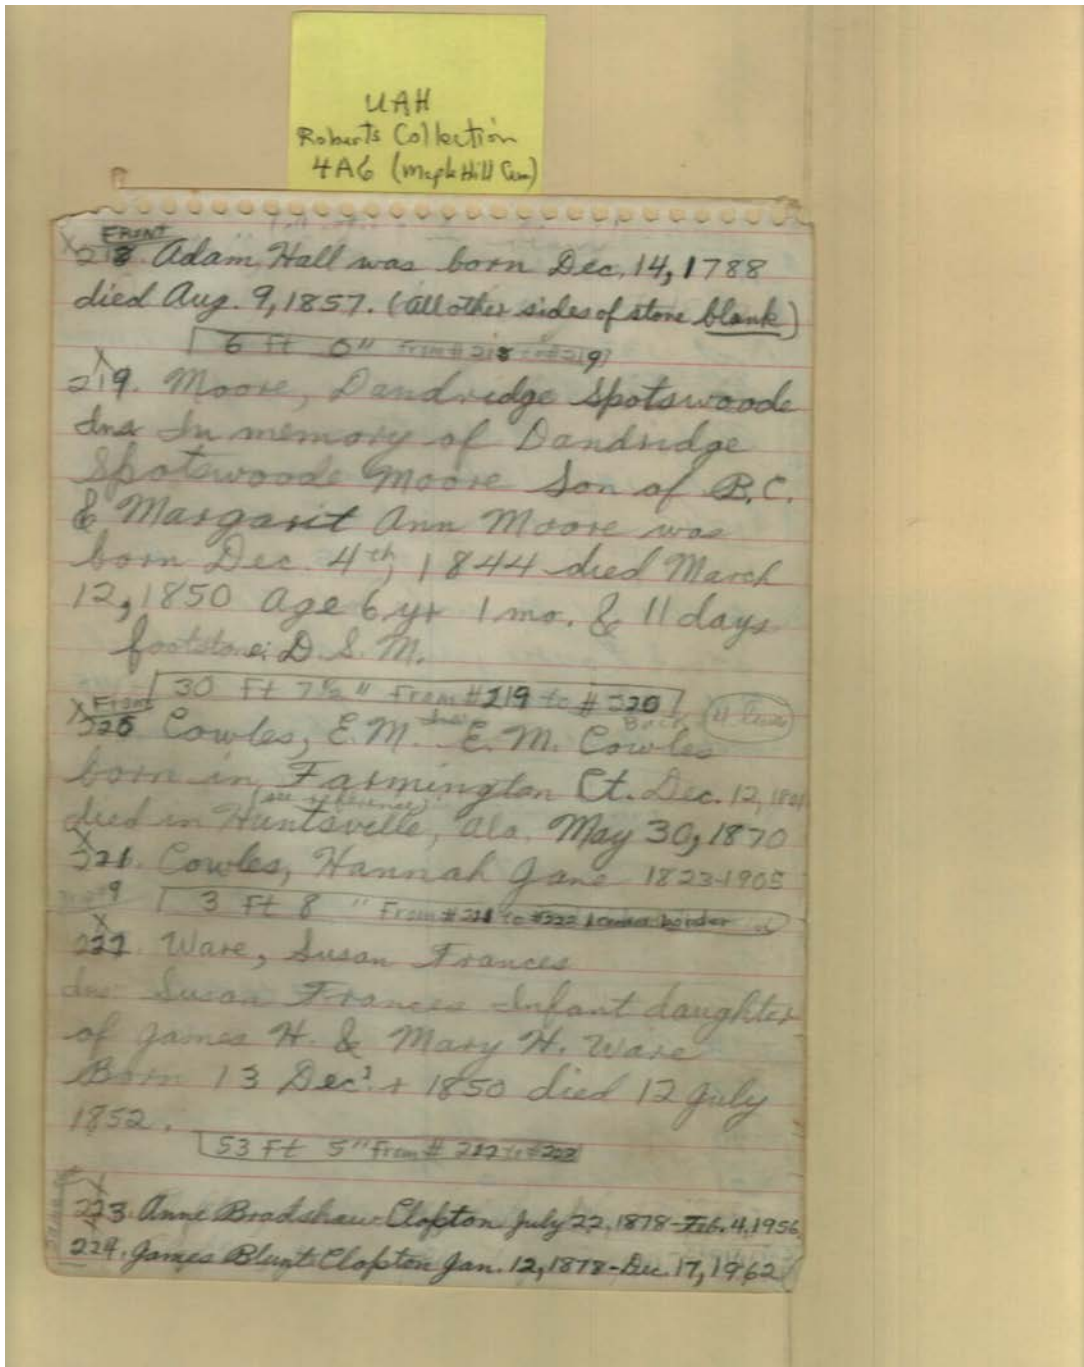 UAH
Roberts Collection
4A6 (Maple Hill Cem)
FRONT
218. Adam Hall was born Dec. 14, 1788
died Aug. 9, 1857. (all other sides of stone blank)
6 Ft 0" From #218 to #219
219. Moore, Dandridge Spotswoode
Ins In memory of Dandridge
Spotswoode Moore Son of B.C.
& Margarit Ann Moore was
born Dec. 4th, 1844 died March
12, 1850 age 6 yr 1 mo. & 11 days
footstone: D. S. M.
30 Ft 7½" From #219 to #320
Front
320 Cowles, E.M. Ins E.M. Cowles
Back
born in Farmington Ct. Dec. 12,
(see reference)
died in Huntsville, Ala. May 30, 1870
321. Cowles, Hannah Jane 1823-1905
3 Ft 8 " From #221 to #222 border
222. Ware, Susan Frances
Ins: Susan Frances Infant daughter
of James H. & Mary H. Ware
Born 13 Dec. 1850 died 12 July
1852.
53 Ft 5" From # 222 to #223
223. Anne Bradshaw Clopton July 22, 1878-Feb. 4, 1956
224. James Blunt Clopton Jan. 12, 1878-Dec. 17, 1962